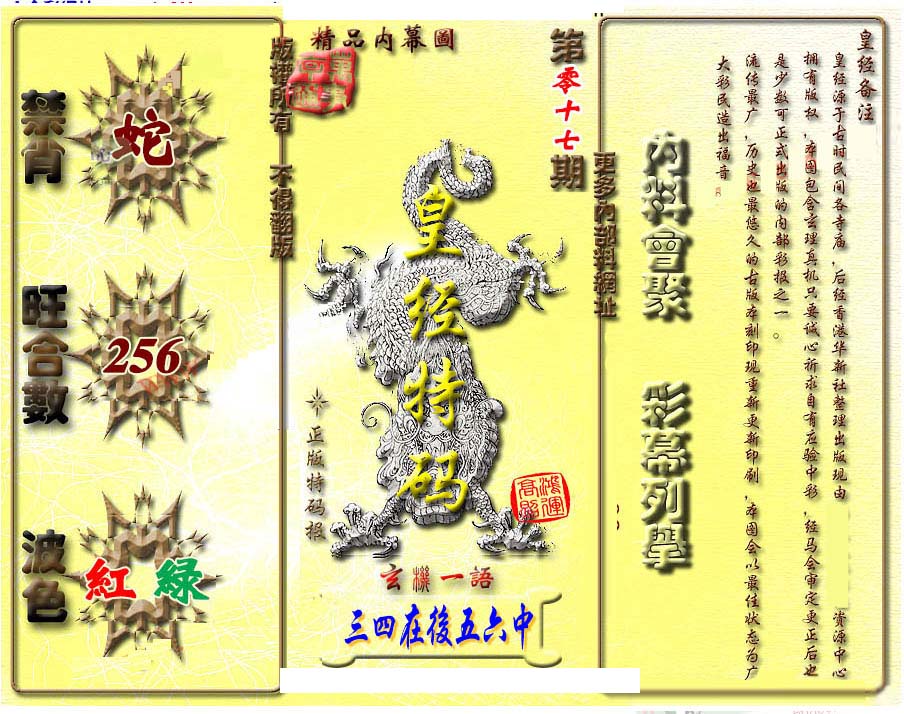 精品内幕圖
第零十七期
版權所有 不得翻版
更多內部料網址
禁肖
蛇
旺合數
256
波色
紅 綠
皇经特码
正版特码报
鴻運高照
玄機一語
三四在後五六中
內料會聚
彩幕列舉
皇经备注
皇经源于古时民间各寺庙,后经香港华新社整理出版现由 资源中心
拥有版权,本图包含玄理真机只要诚心祈求自有应验中彩,经马会审定更正后也
是少数可正式出版的内部彩报之一。
流传最广,历史也最悠久的古版本刻印现重新更新印刷,本图会以最佳状态为广
大彩民造出福音